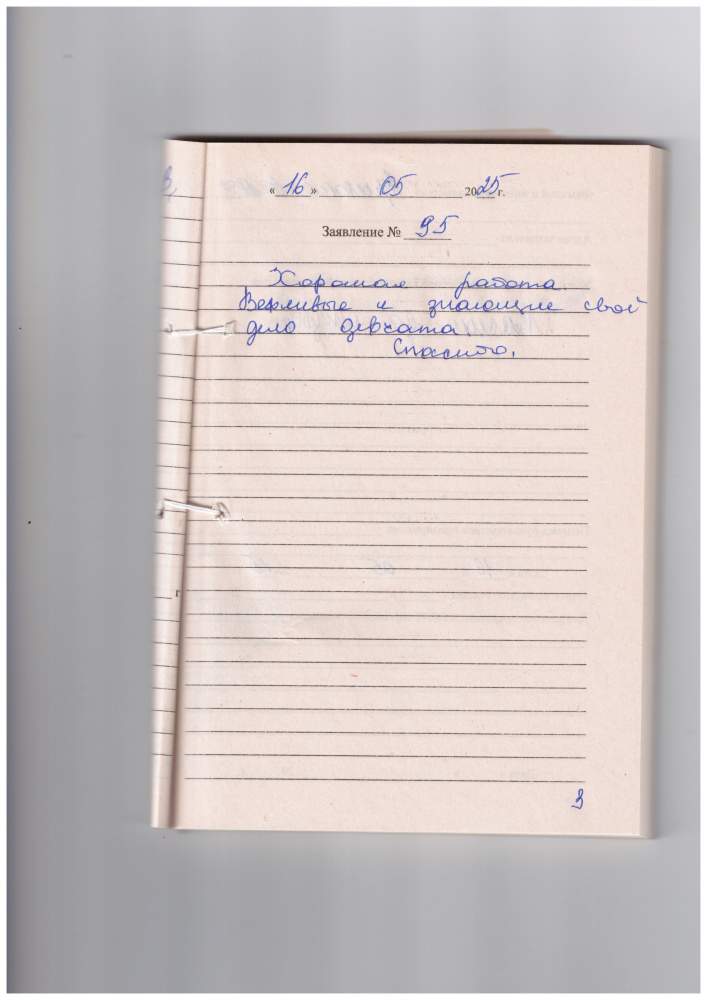 « 16 » 05 2025 г.
Заявление № 95
Хорошая работа.
Вежливые и знающие свой
дело девчата.
Спасибо.
г
3